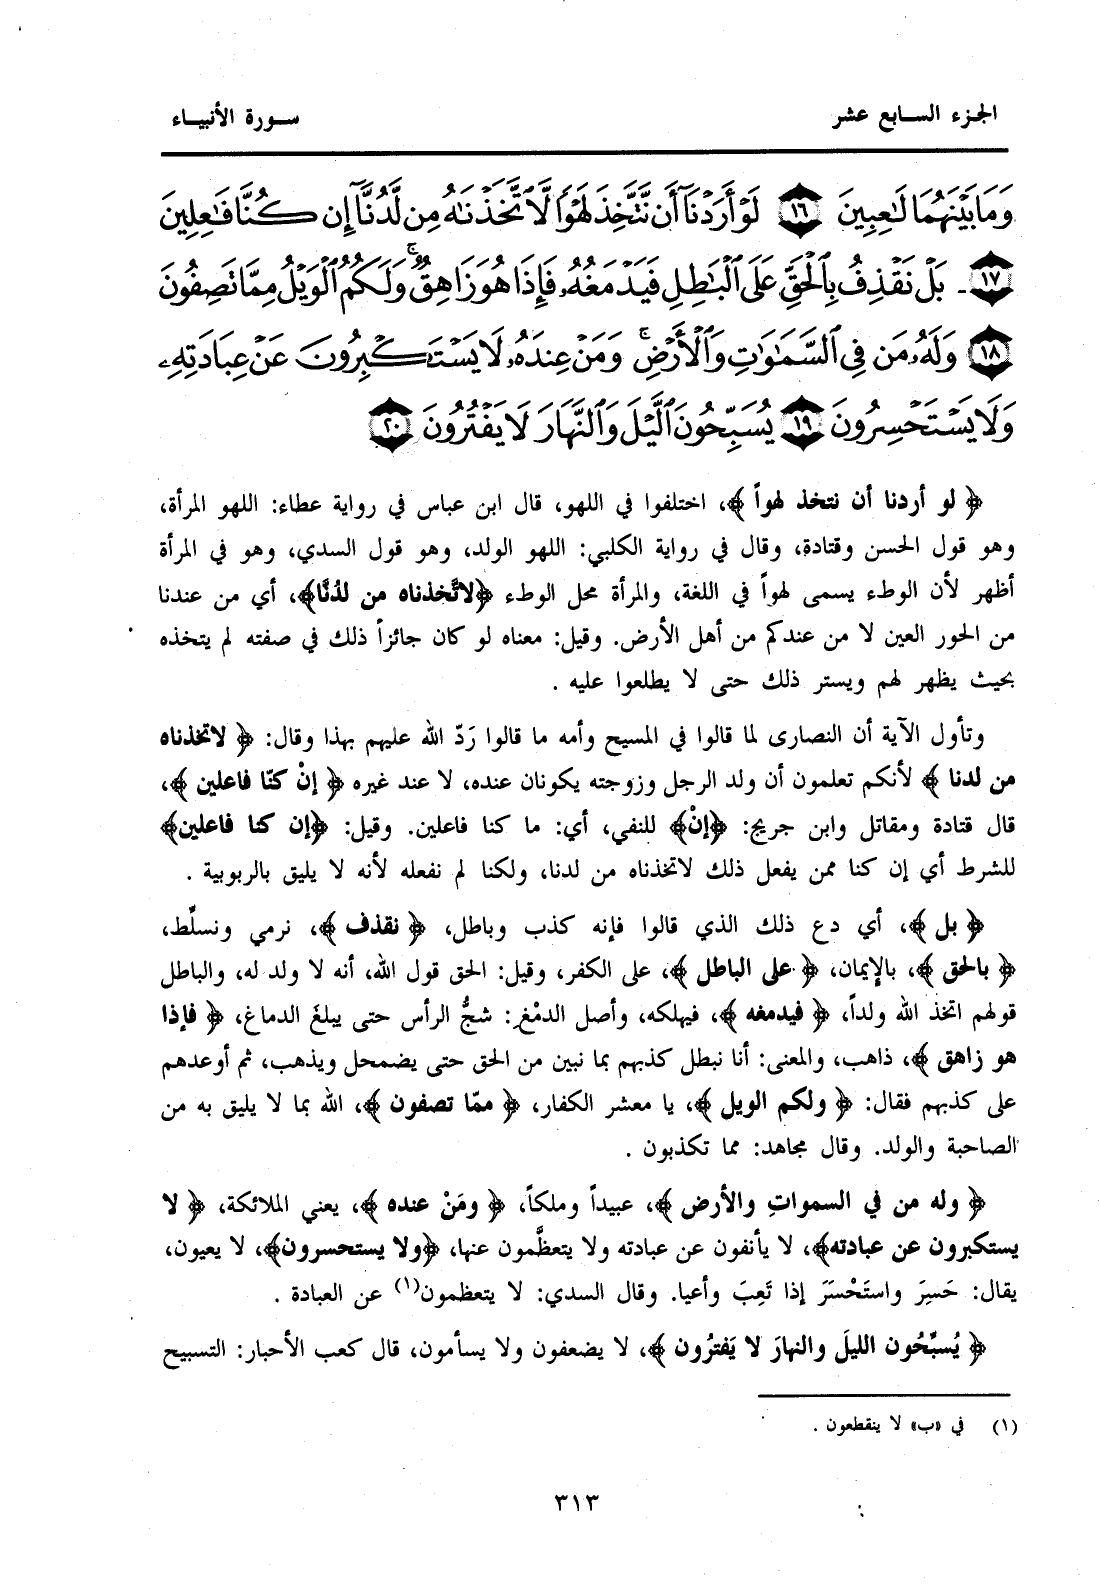 الجزء السابع عشر
سورة الأنبياء
وَمَا بَيْنَهُمَا لَٰعِبِينَ ١٦ لَوْ أَرَدْنَآ أَن نَّتَّخِذَ لَهْوًا لَّٱتَّخَذْنَٰهُ مِن لَّدُنَّآ إِن كُنَّا فَٰعِلِينَ
١٧ بَلْ نَقْذِفُ بِٱلْحَقِّ عَلَى ٱلْبَٰطِلِ فَيَدْمَغُهُۥ فَإِذَا هُوَ زَاهِقٌ ۚ وَلَكُمُ ٱلْوَيْلُ مِمَّا تَصِفُونَ
١٨ وَلَهُۥ مَن فِي ٱلسَّمَٰوَٰتِ وَٱلْأَرْضِ ۚ وَمَنْ عِندَهُۥ لَا يَسْتَكْبِرُونَ عَنْ عِبَادَتِهِۦ
وَلَا يَسْتَحْسِرُونَ ١٩ يُسَبِّحُونَ ٱلَّيْلَ وَٱلنَّهَارَ لَا يَفْتُرُونَ ٢٠
﴿ لو أردنا أن نتخذ لهواً ﴾، اختلفوا في اللهو، قال ابن عباس في رواية عطاء: اللهو المرأة،
وهو قول الحسن وقتادة، وقال في رواية الكلبي: اللهو الولد، وهو قول السدي، وهو في المرأة
أظهر لأن الوطء يسمى لهواً في اللغة، والمرأة محل الوطء ﴿لاتَّخذناه من لدُنَّا﴾، أي من عندنا
من الحور العين لا من عندكم من أهل الأرض. وقيل: معناه لو كان جائزاً ذلك في صفته لم يتخذه
بحيث يظهر لهم ويستر ذلك حتى لا يطلعوا عليه .
وتأول الآية أن النصارى لما قالوا في المسيح وأمه ما قالوا رَدّ الله عليهم بهذا وقال: ﴿ لاتخذناه
من لدنا ﴾ لأنكم تعلمون أن ولد الرجل وزوجته يكونان عنده، لا عند غيره ﴿ إنْ كنّا فاعلين ﴾،
قال قتادة ومقاتل وابن جريج: ﴿إنْ﴾ للنفي، أي: ما كنا فاعلين. وقيل: ﴿إن كنا فاعلين﴾
للشرط أي إن كنا ممن يفعل ذلك لاتخذناه من لدنا، ولكنا لم نفعله لأنه لا يليق بالربوبية .
﴿ بل ﴾، أي دع ذلك الذي قالوا فإنه كذب وباطل، ﴿ نقذف ﴾، نرمي ونسلِّط،
﴿ بالحق ﴾، بالإيمان، ﴿ على الباطل ﴾، على الكفر، وقيل: الحق قول الله، أنه لا ولد له، والباطل
قولهم اتخذ الله ولداً، ﴿ فيدمغه ﴾، فيهلكه، وأصل الدمْغ: شجُّ الرأس حتى يبلغَ الدماغ، ﴿ فإذا
هو زاهق ﴾، ذاهب، والمعنى: أنا نبطل كذبهم بما نبين من الحق حتى يضمحل ويذهب، ثم أوعدهم
على كذبهم فقال: ﴿ ولكم الويل ﴾، يا معشر الكفار، ﴿ ممّا تصفون ﴾، الله بما لا يليق به من
الصاحبة والولد. وقال مجاهد: مما تكذبون .
﴿ وله من في السمواتِ والأرض ﴾، عبيداً وملكاً، ﴿ ومَنْ عنده ﴾، يعني الملائكة، ﴿ لا
يستكبرون عن عبادته﴾، لا يأنفون عن عبادته ولا يتعظَّمون عنها، ﴿ولا يستحسرون﴾، لا يعيون،
يقال: حَسِرَ واستَحْسَرَ إذا تَعِبَ وأعيا. وقال السدي: لا يتعظمون(١) عن العبادة .
﴿ يُسبِّحُون الليلَ والنهارَ لا يَفترُون ﴾، لا يضعفون ولا يسأمون، قال كعب الأحبار: التسبيح
(١) في «ب» لا ينقطعون .
٣١٣